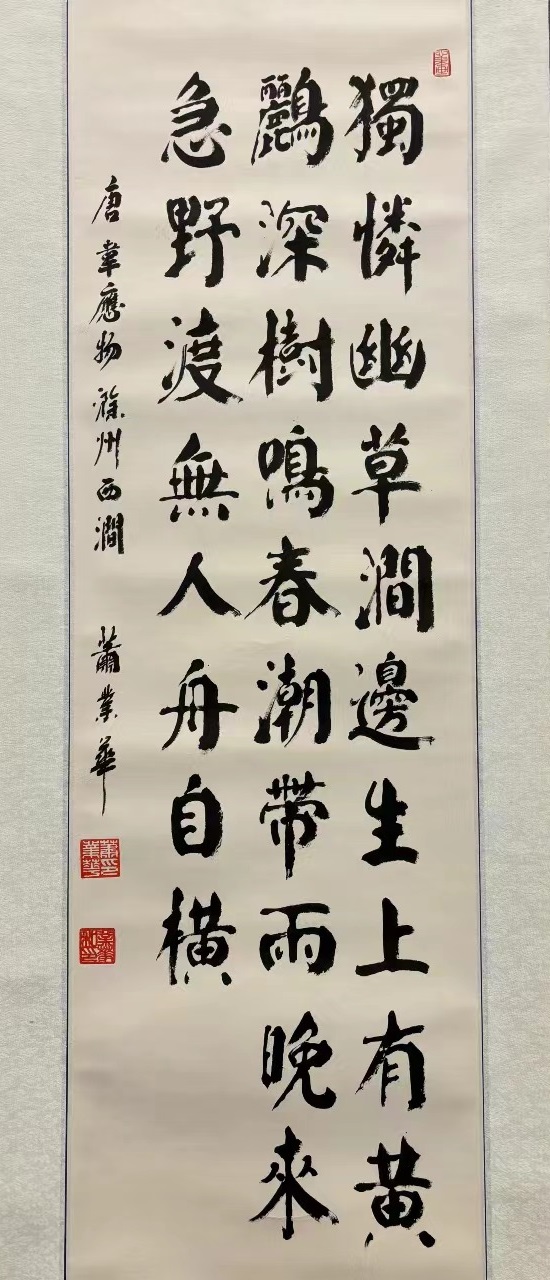 獨憐幽草澗邊生上有黃
鸝深樹鳴春潮帶雨晚來
急野渡無人舟自橫
唐韋應物滁州西澗 蕭業華
蕭業華印